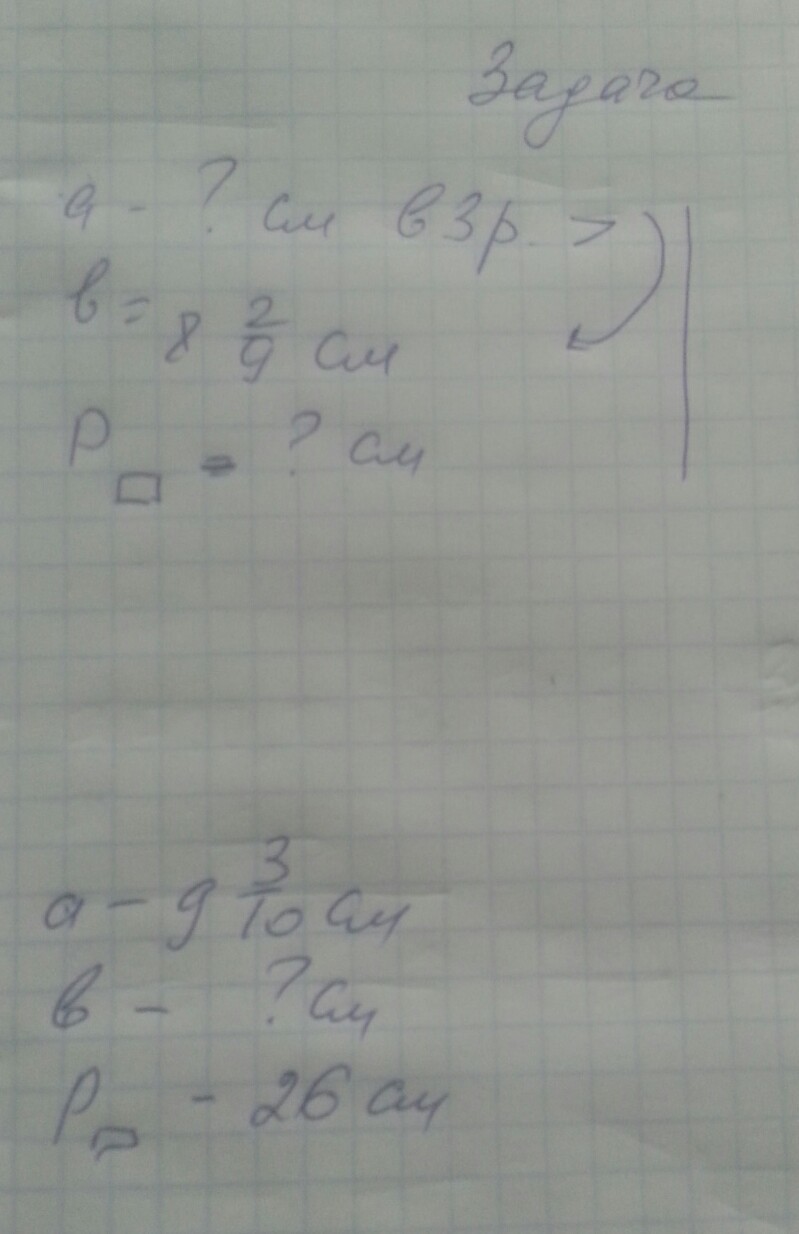 Задача
а - ? см в 3 р. >
в = 8 2/9 см
P▭ = ? см
а - 9 3/10 см
в - ? см
P▭ - 26 см